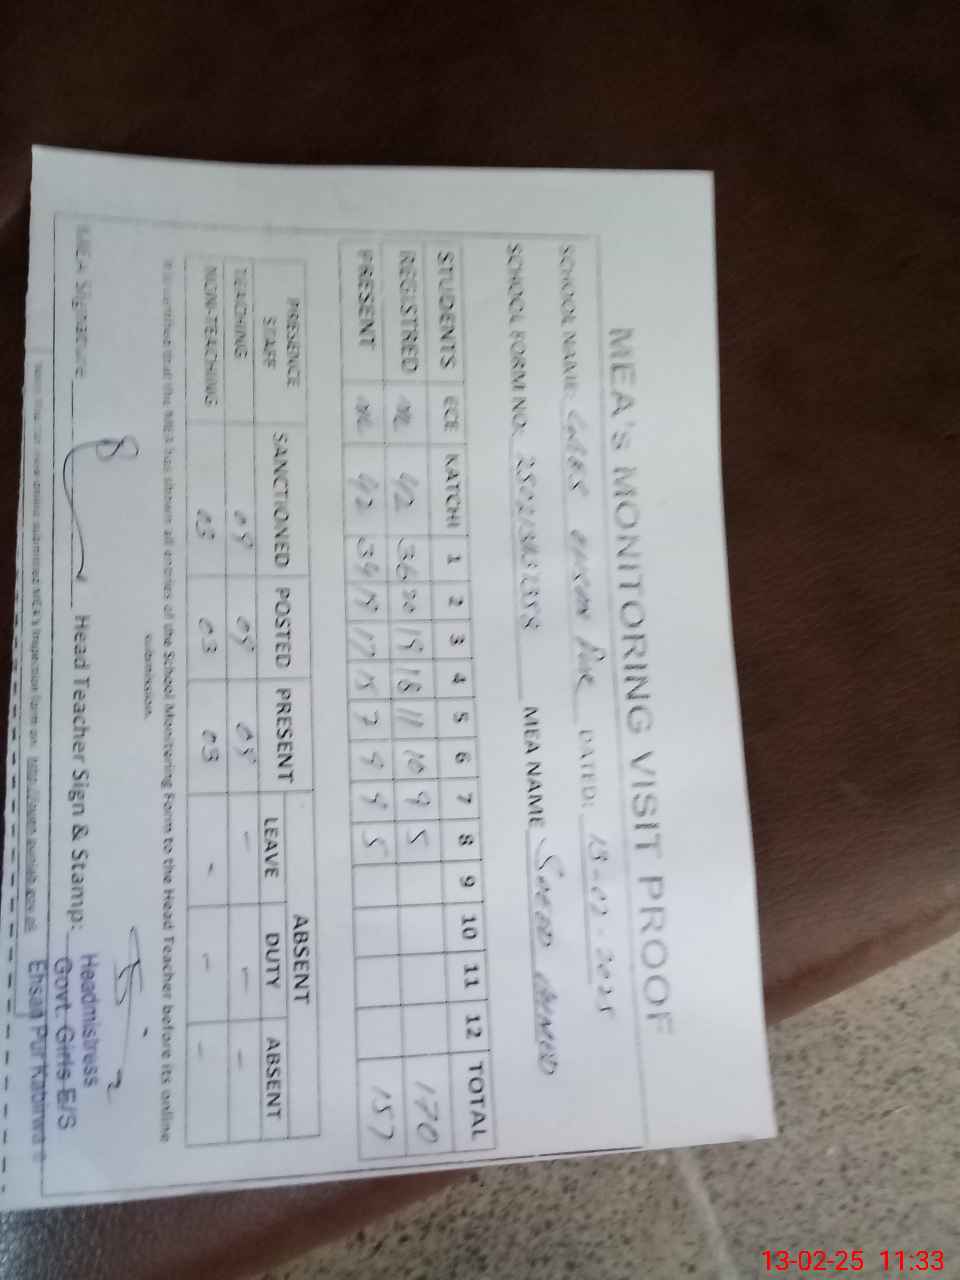 MEA's MONITORING VISIT PROOF
SCHOOL NAME: GGES Ehsan Pur DATED: 13-02-2025
SCHOOL FORM NO: MEA NAME Saeed Ahmed
STUDENTS ECE KATCHI 1 2 3 4 5 6 7 8 9 10 11 12 TOTAL
REGISTRED 42 36 20 19 18 11 10 9 5 170
PRESENT 42 34 19 17 15 7 9 9 5 157
PRESENCE STAFF SANCTIONED POSTED PRESENT ABSENT
LEAVE DUTY ABSENT
TEACHING 09 09 09 - - -
NON-TEACHING 03 03 03 - - -
It is certified that the MEA has shown all entries of the School Monitoring Form to the Head Teacher before its online
submission.
MEA Signature Head Teacher Sign & Stamp:
Headmistress
Govt. Girls E/S
Ehsan Pur Kabirwala
13-02-25 11:33